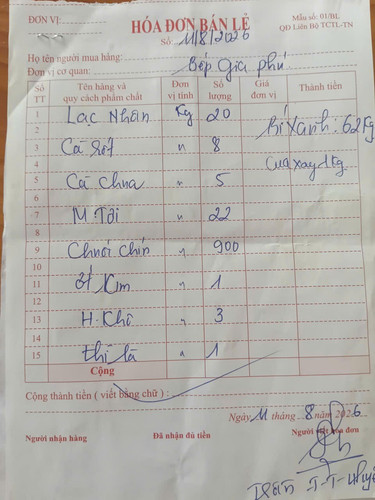 ĐƠN VỊ
HÓA ĐƠN BÁN LẺ
Mẫu số: 01/BL
QĐ Liên Bộ TCTL-TN
Số: 11/8/2026
Họ tên người mua hàng: Bếp Gia phú
Đơn vị cơ quan:
Số TT Tên hàng và quy cách phẩm chất Đơn vị tính Số lượng Giá đơn vị Thành tiền
1 Lạc Nhân Kg 20 Bí Xanh: 62Kg
2
3 Cà Rốt " 8
4 Cua xay 1kg
5 Cà Chua " 5
6
7 M Tỏi " 22
8
9 Chuối chín " 900
10
11 ớt Kim " 1
12
13 H. Khô " 3
14
15 thì là " 1
Cộng
Cộng thành tiền ( viết bằng chữ ) :
Ngày 11 tháng 8 năm 2026
Người nhận hàng Đã nhận đủ tiền Người viết hóa đơn